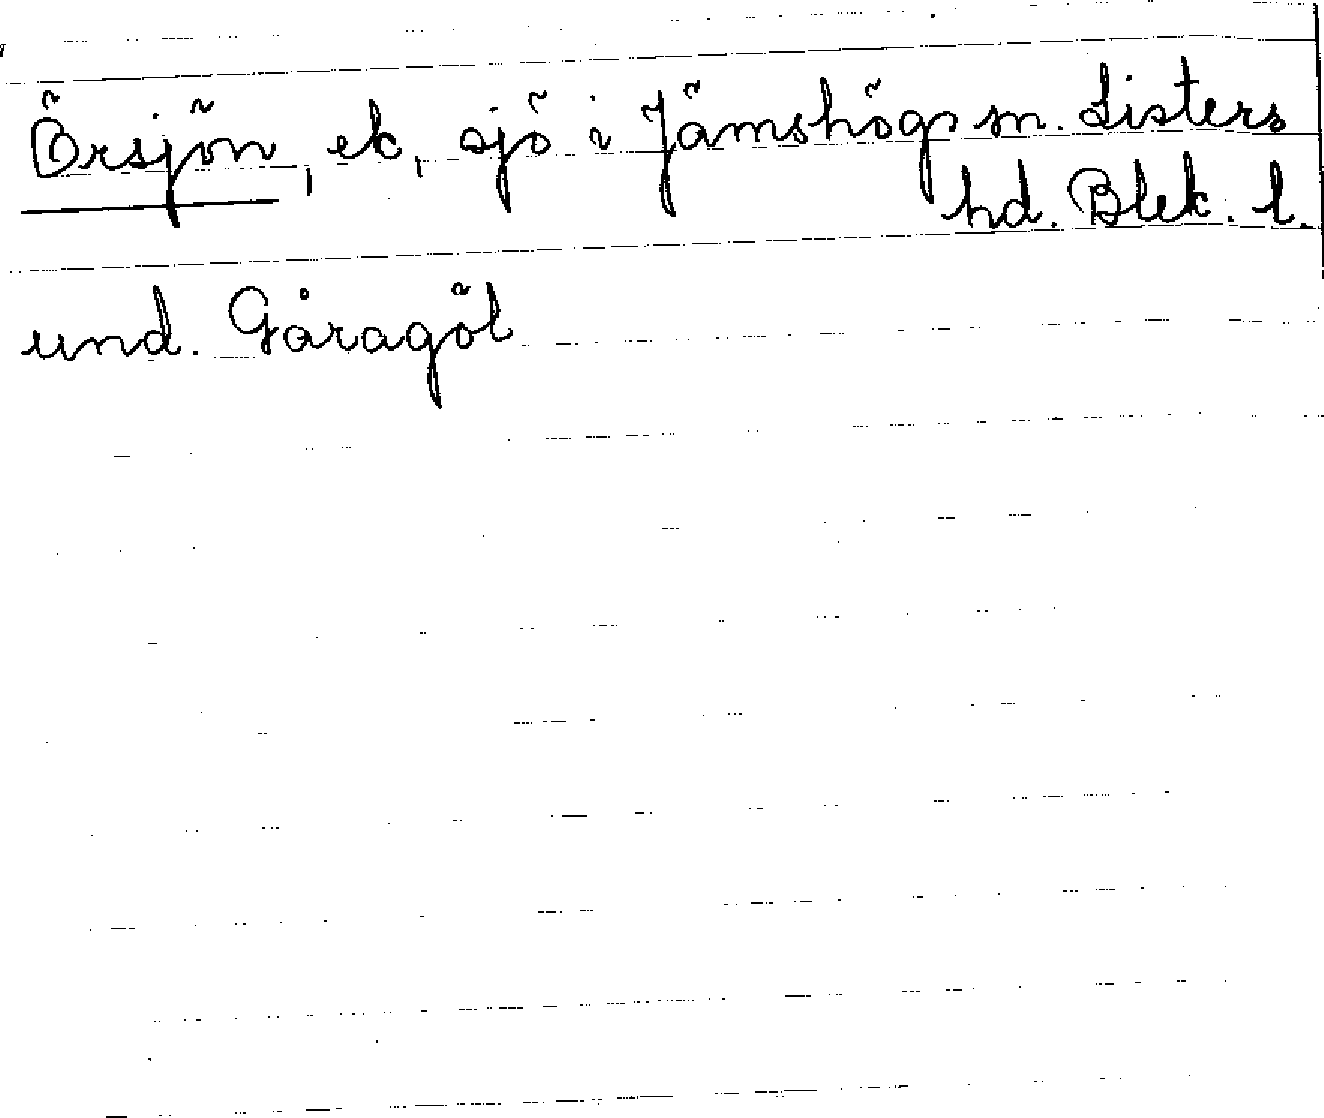 Örsjön, ek, sjö i Jämshögs sn. Listers
hd. Blek. l.
und. Gåragöl